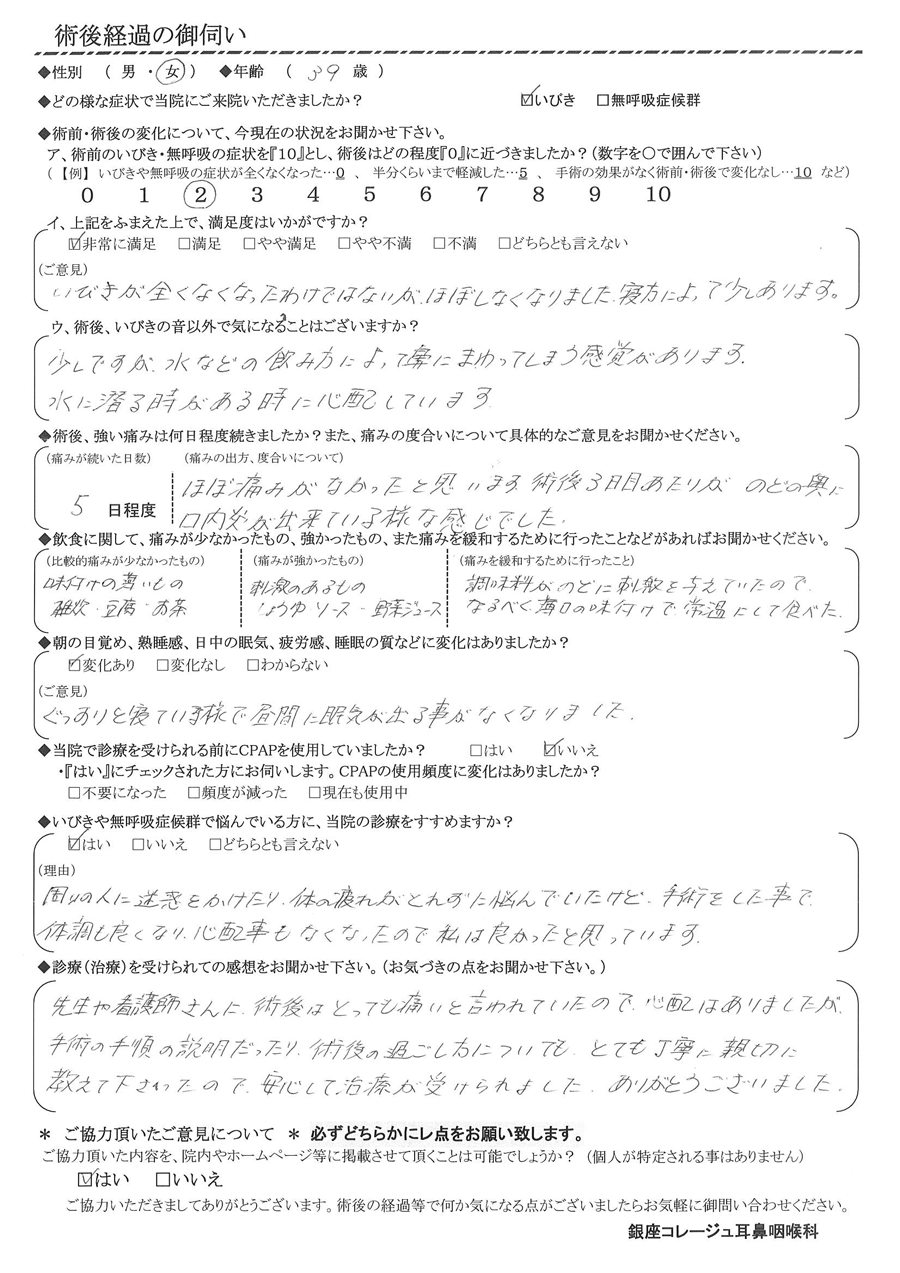 術後経過の御伺い
◆性別 （ 男 ・ 女 ） ◆年齢 （ 39 歳 ）
◆どの様な症状で当院にご来院いただきましたか？ ☑いびき □無呼吸症候群
◆術前・術後の変化について、今現在の状況をお聞かせ下さい。
ア、術前のいびき・無呼吸の症状を『10』とし、術後はどの程度『0』に近づきましたか？（数字を〇で囲んで下さい）
（【例】いびきや無呼吸の症状が全くなくなった…0 、 半分くらいまで軽減した…5 、 手術の効果がなく術前・術後で変化なし…10 など）
0 1 2 3 4 5 6 7 8 9 10
イ、上記をふまえた上で、満足度はいかがですか？
☑非常に満足 □満足 □やや満足 □やや不満 □不満 □どちらとも言えない
（ご意見）
いびきが全くなくなったわけではないが、ほぼしなくなりました。寝方によって少しあります。
ウ、術後、いびきの音以外で気になることはございますか？
少しですが、水などの飲み方によって鼻にまわってしまう感覚があります。
水に潜る時がある時に心配しています。
◆術後、強い痛みは何日程度続きましたか？また、痛みの度合いについて具体的なご意見をお聞かせください。
（痛みが続いた日数） （痛みの出方、度合いについて）
5 日程度 ほぼ痛みがなかったと思います。術後3日目あたりが のどの奥に
口内炎が出来ている様な感じでした。
◆飲食に関して、痛みが少なかったもの、強かったもの、また痛みを緩和するために行ったことなどがあればお聞かせください。
（比較的痛みが少なかったもの） （痛みが強かったもの） （痛みを緩和するために行ったこと）
味付けの薄いもの 刺激のあるもの 調味料がのどに刺激を与えていたので、
雑炊・豆腐・お茶 しょうゆ ソース・野菜ジュース なるべく薄口の味付けで、常温にして食べた。
◆朝の目覚め、熟睡感、日中の眠気、疲労感、睡眠の質などに変化はありましたか？
☑変化あり □変化なし □わからない
（ご意見）
ぐっすりと寝ている様で昼間に眠気が出る事がなくなりました。
◆当院で診療を受けられる前にCPAPを使用していましたか？ □はい ☑いいえ
・『はい』にチェックされた方にお伺いします。CPAPの使用頻度に変化はありましたか？
□不要になった □頻度が減った □現在も使用中
◆いびきや無呼吸症候群で悩んでいる方に、当院の診療をすすめますか？
☑はい □いいえ □どちらとも言えない
（理由）
周りの人に迷惑をかけたり、体の疲れがとれずに悩んでいたけど、手術をした事で、
体調も良くなり、心配事もなくなったので私は良かったと思っています。
◆診療（治療）を受けられての感想をお聞かせ下さい。（お気づきの点をお聞かせ下さい。）
先生や看護師さんに、術後はとっても痛いと言われていたので、心配はありましたが、
手術の手順の説明だったり、術後の過ごし方についても、とても丁寧に親切に
教えて下さったので、安心して治療が受けられました。ありがとうございました。
＊ ご協力頂いたご意見について ＊ 必ずどちらかにレ点をお願い致します。
ご協力頂いた内容を、院内やホームページ等に掲載させて頂くことは可能でしょうか？（個人が特定される事はありません）
☑はい □いいえ
ご協力いただきましてありがとうございます。術後の経過等で何か気になる点がございましたらお気軽に御問い合わせください。
銀座コレージュ耳鼻咽喉科